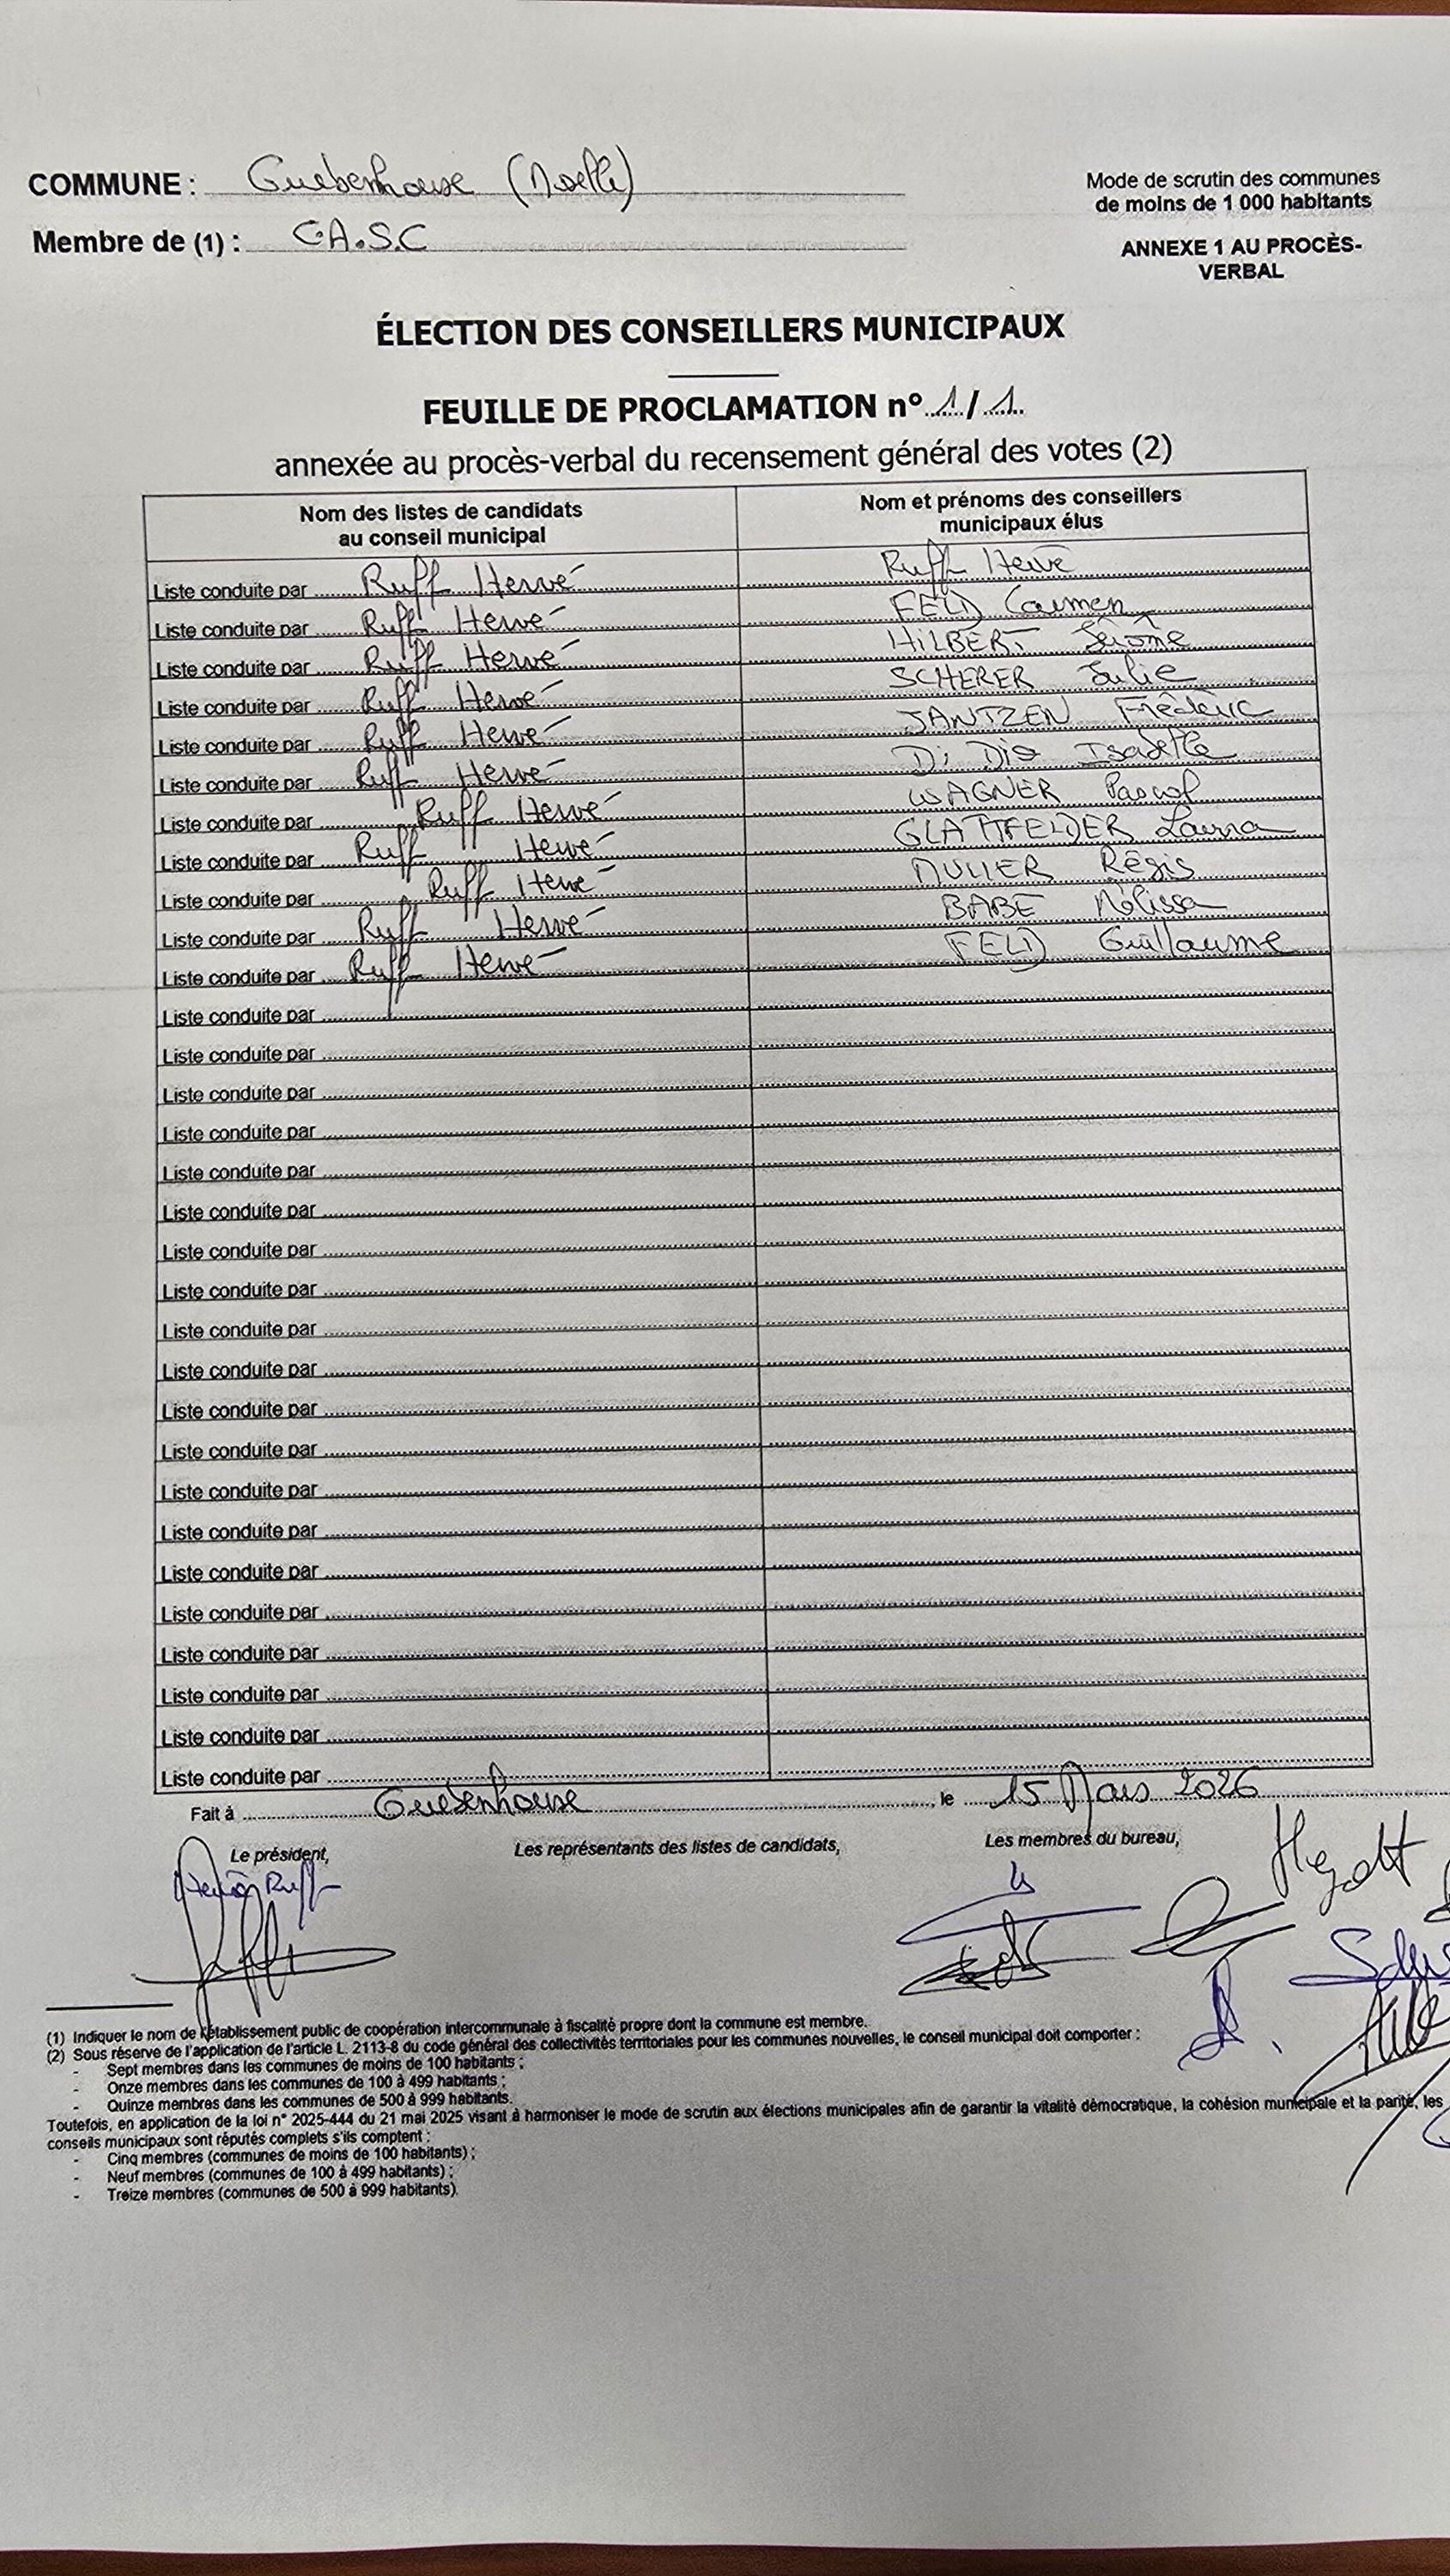 COMMUNE : Guebenhouse (Moselle)
Mode de scrutin des communes
de moins de 1 000 habitants
Membre de (1) : C.A.S.C
ANNEXE 1 AU PROCÈS-
VERBAL
ÉLECTION DES CONSEILLERS MUNICIPAUX
FEUILLE DE PROCLAMATION n° 1 / 1
annexée au procès-verbal du recensement général des votes (2)
Nom des listes de candidats
au conseil municipal
Nom et prénoms des conseillers
municipaux élus
Liste conduite par Ruff Hervé Ruff Hervé
Liste conduite par Ruff Hervé FELD Carmen
Liste conduite par Ruff Hervé HILBERT Jérôme
Liste conduite par Ruff Hervé SCHERER Julie
Liste conduite par Ruff Hervé JANTZEN Frédéric
Liste conduite par Ruff Hervé Di Dio Isabelle
Liste conduite par Ruff Hervé WAGNER Pascal
Liste conduite par Ruff Hervé GLATTFELDER Laura
Liste conduite par Ruff Hervé MULLER Régis
Liste conduite par Ruff Hervé BABE Mélissa
Liste conduite par Ruff Hervé FELD Guillaume
Liste conduite par
Liste conduite par
Liste conduite par
Liste conduite par
Liste conduite par
Liste conduite par
Liste conduite par
Liste conduite par
Liste conduite par
Liste conduite par
Liste conduite par
Liste conduite par
Liste conduite par
Liste conduite par
Liste conduite par
Liste conduite par
Liste conduite par
Liste conduite par
Liste conduite par
Liste conduite par
Fait à Guebenhouse, le 15 Mars 2026
Le président,
Les représentants des listes de candidats,
Les membres du bureau,
Hervé Ruff
(1) Indiquer le nom de l'établissement public de coopération intercommunale à fiscalité propre dont la commune est membre.
(2) Sous réserve de l'application de l'article L. 2113-8 du code général des collectivités territoriales pour les communes nouvelles, le conseil municipal doit comporter :
- Sept membres dans les communes de moins de 100 habitants ;
- Onze membres dans les communes de 100 à 499 habitants ;
- Quinze membres dans les communes de 500 à 999 habitants.
Toutefois, en application de la loi n° 2025-444 du 21 mai 2025 visant à harmoniser le mode de scrutin aux élections municipales afin de garantir la vitalité démocratique, la cohésion municipale et la parité, les
conseils municipaux sont réputés complets s'ils comptent :
- Cinq membres (communes de moins de 100 habitants) ;
- Neuf membres (communes de 100 à 499 habitants) ;
- Treize membres (communes de 500 à 999 habitants).